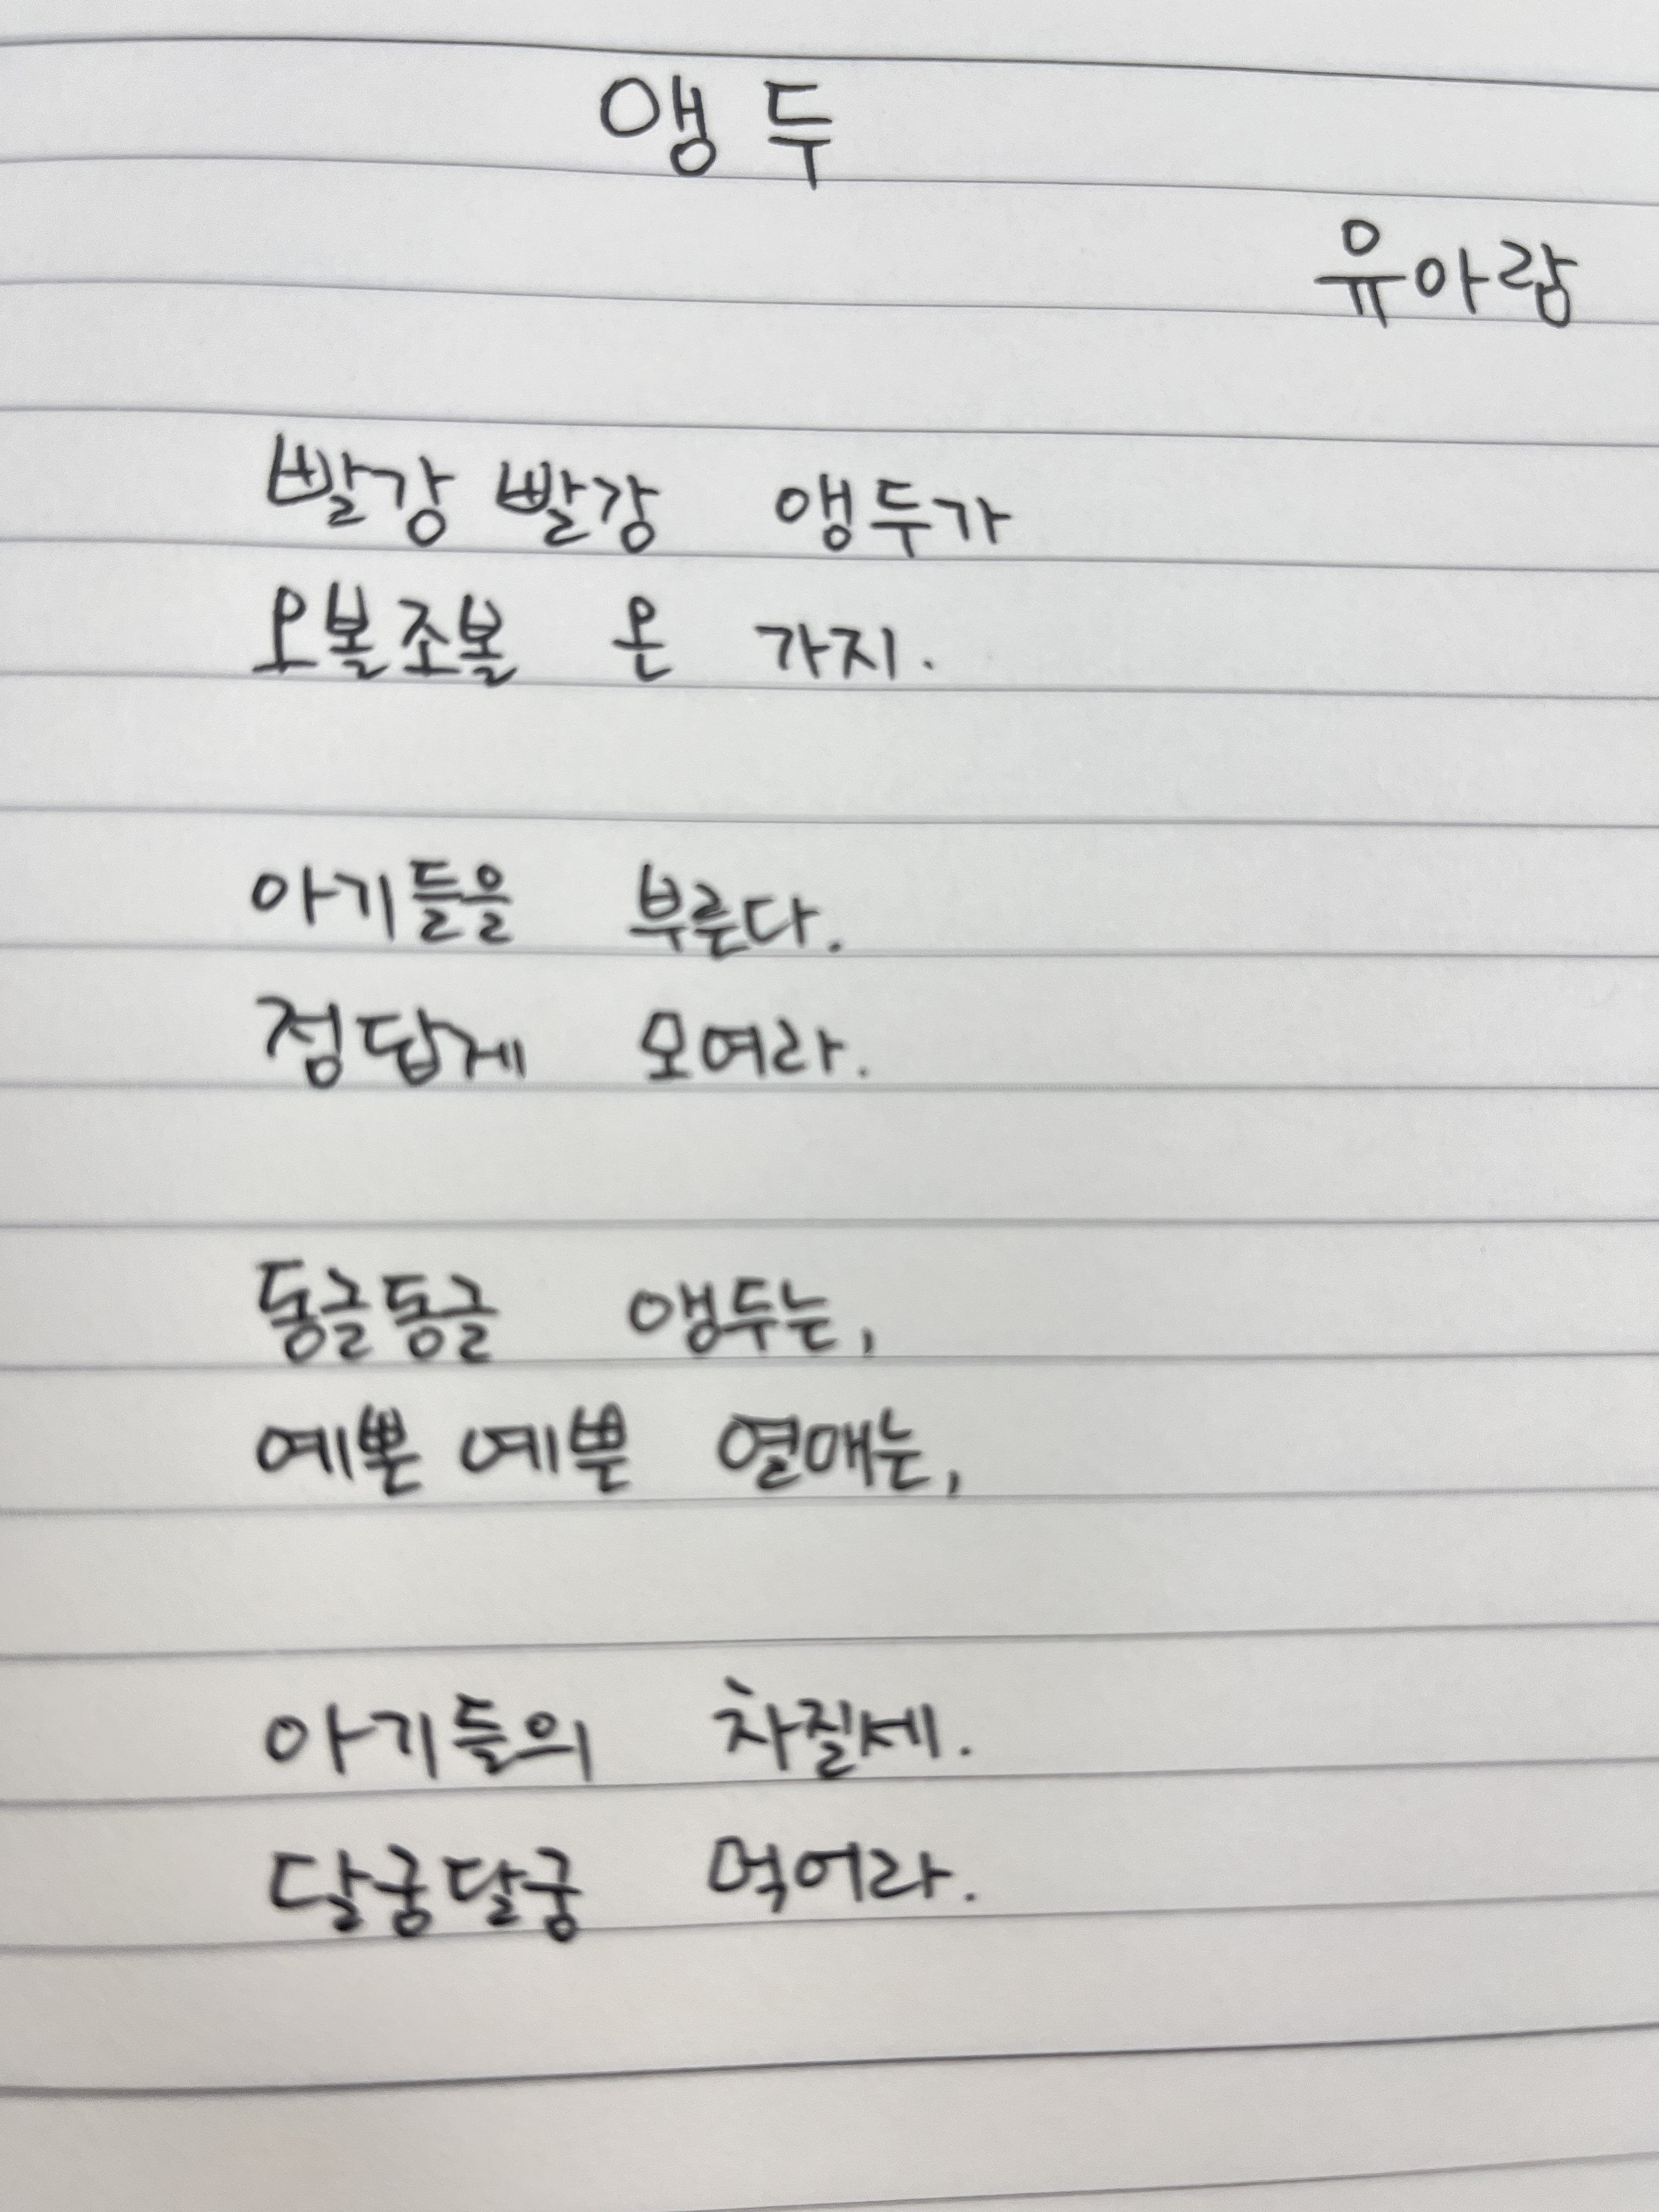 앵두
유아람
빨강 빨강 앵두가
오볼조볼 온 가지.
아기들을 부른다.
정답게 모여라.
동글동글 앵두는,
예쁜 예쁜 열매는,
아기들의 차질세.
달궁달궁 먹어라.